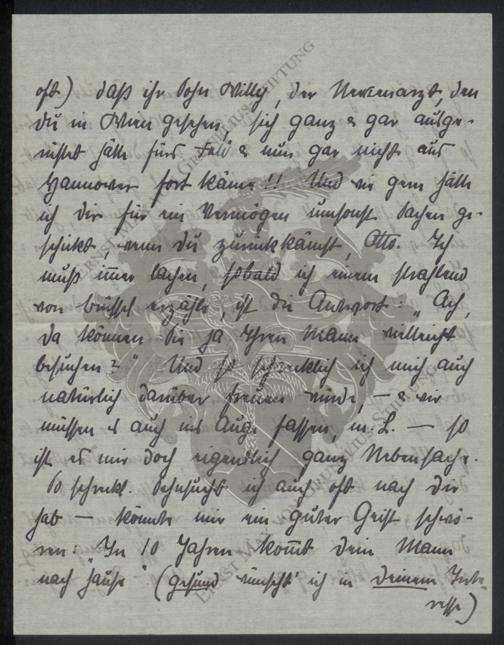 oft) daß ihr Sohn Willy, der Nervenarzt, den
du in Wien gesehen, sich ganz & gar ausge-
rüstet hätte fürs Feld & nun gar nicht aus
Hannover fort käme!! Und wie gern hätte
ich dir für ein Vermögen umsonst Sachen ge-
schickt, wenn du zurückkämst, Otto. Ich
muß immer lachen, sobald ich einem strahlend
von Brüssel erzähle, ist die Antwort: „Ach,
da können Sie ja Ihren Mann vielleicht
besuchen?" Und so schrecklich ich mich auch
natürlich darüber freuen würde, – & wir
müssen es auch ins Auge fassen, m. L. — so
ist es mir doch eigentlich ganz Nebensache.
So schreckl. Sehnsucht ich auch oft nach dir
hab – könnte mir ein guter Geist schwö-
ren: „In 10 Jahren kommt dein Mann
nach Hause" (gesund wünscht' ich in deinem Inte-
resse)
ERNST MAX VON GRUNELIUS-STIFTUNG
ERNST MAX VON GRUNELIUS-STIFTUNG